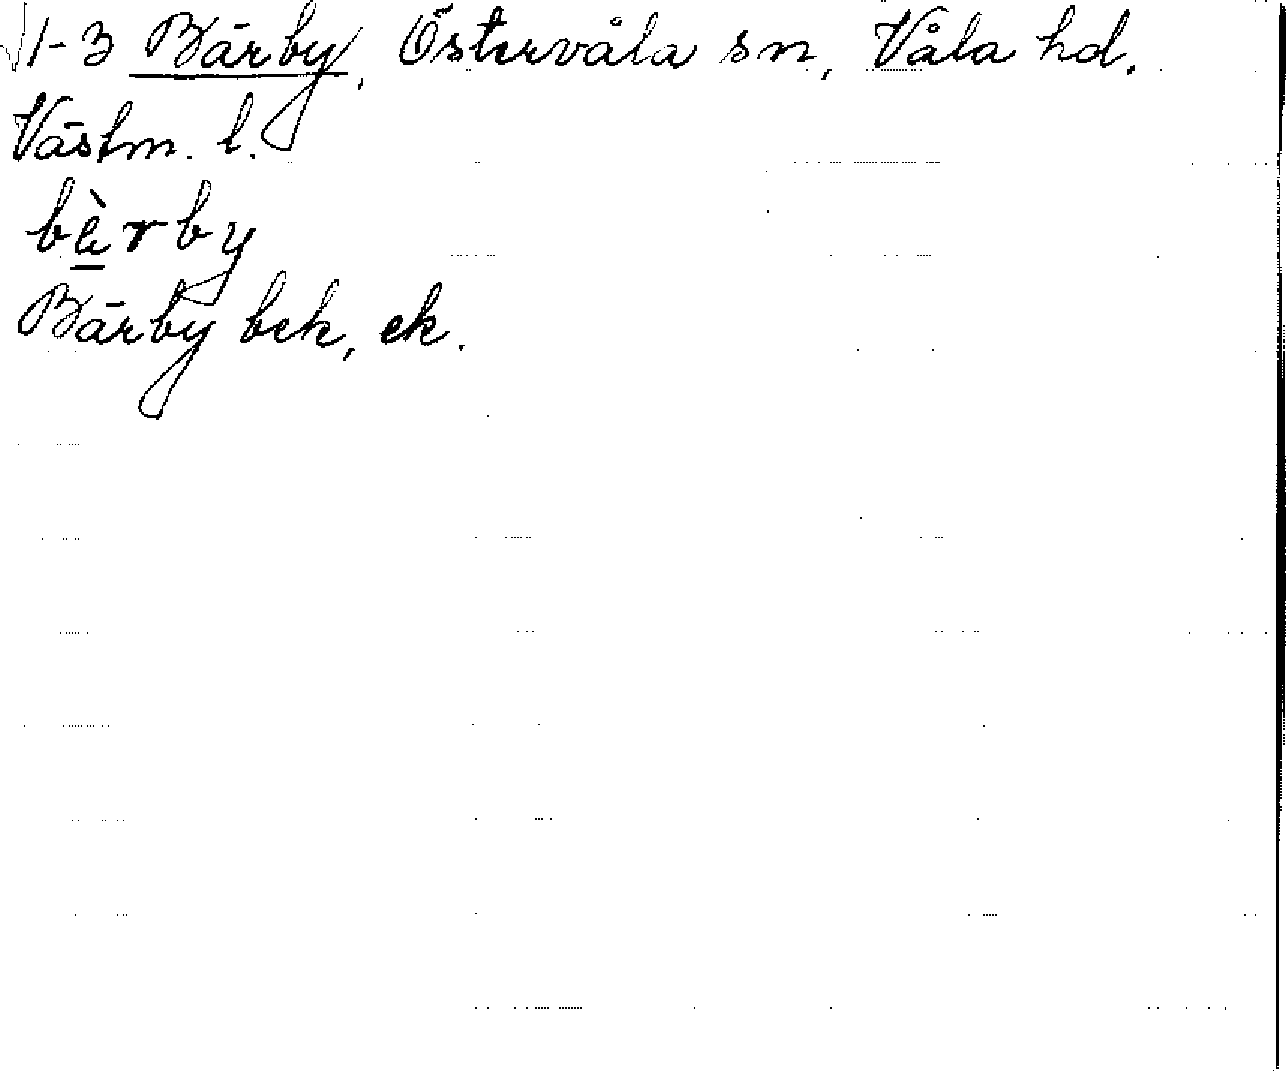 √1-3 Bärby, Östervåla sn, Våla hd.
Västm. l.
bèrby
Bärby bek, ek.